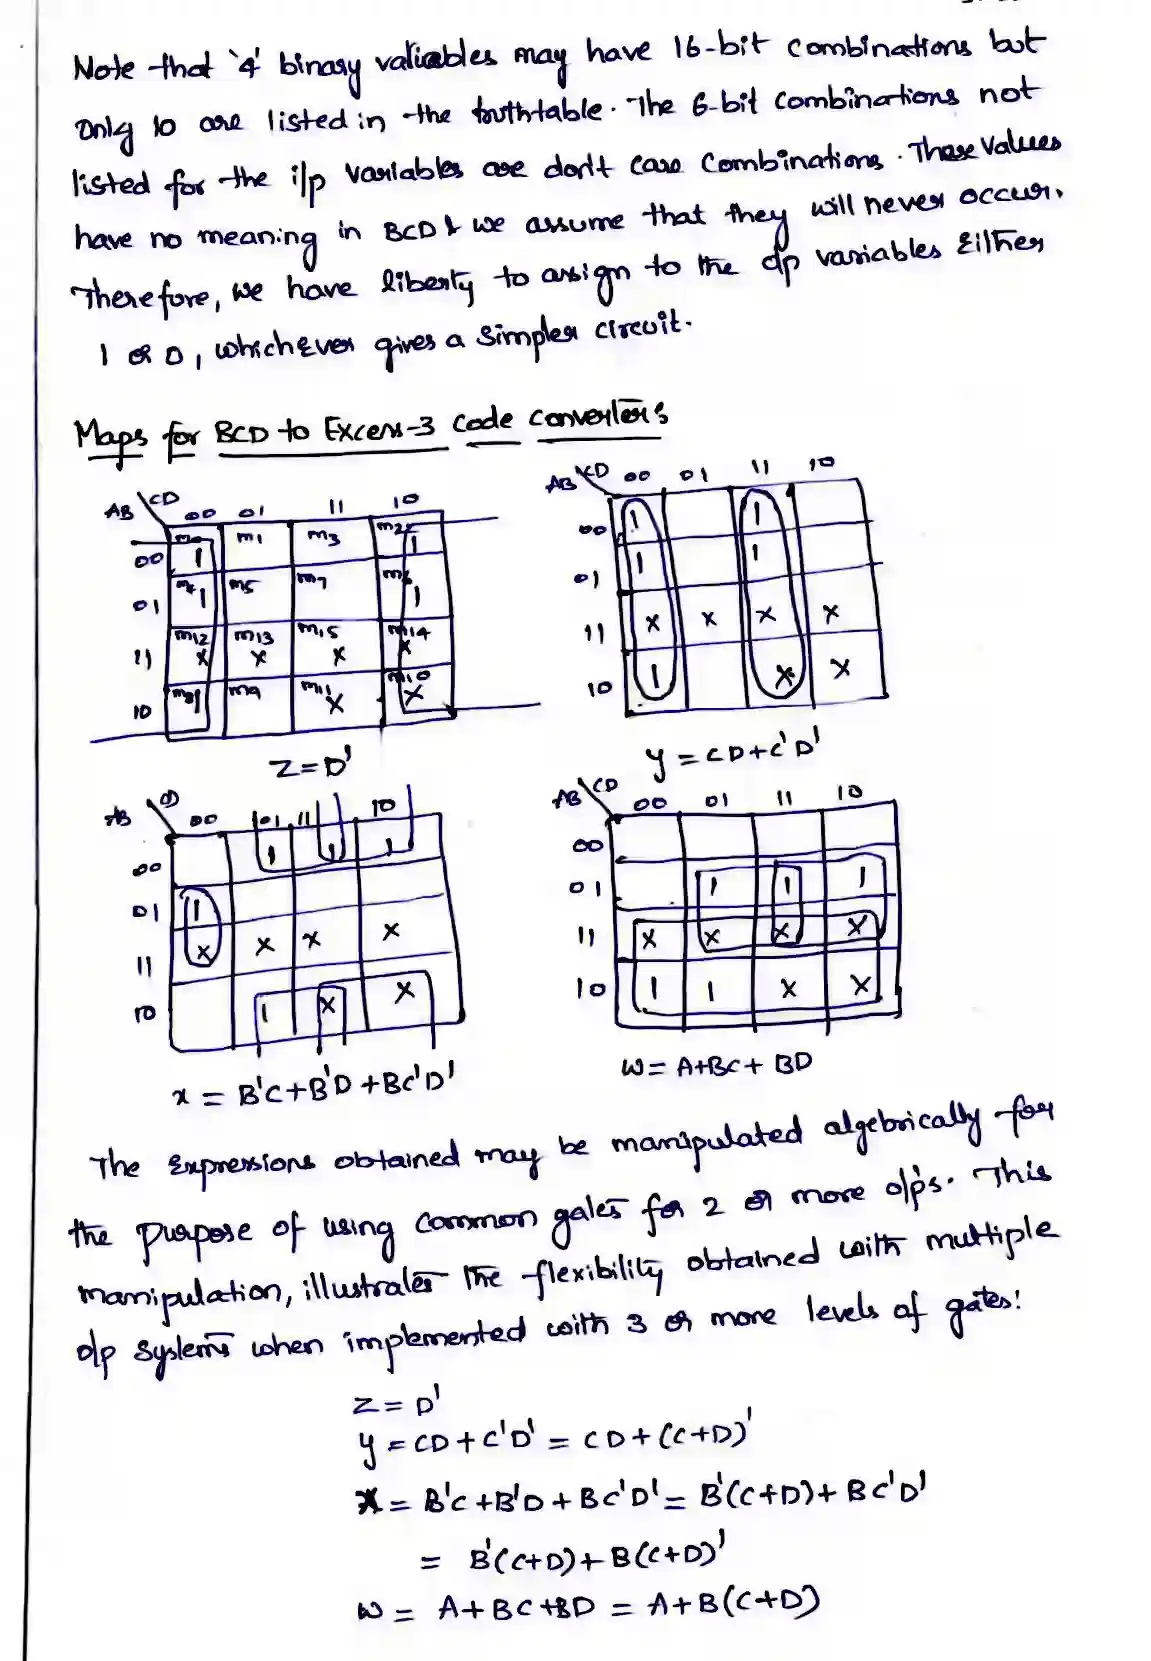 Note that '4' binary valiables may have 16-bit combinations but
only 10 are listed in the truthtable. The 6-bit combinations not
listed for the i/p variables are don't care combinations. These values
have no meaning in BCD & we assume that they will never occur.
Therefore, we have liberty to assign to the o/p variables Either
1 or 0, whichever gives a simpler circuit.
Maps for BCD to Excess-3 code converters
AB CD 00 01 11 10
00 m0 1 m1 m3 m2 1
01 m4 1 m5 m7 m6 1
11 m12 x m13 x m15 x m14 x
10 m8 1 m9 m11 x m10 x
Z=D'
AB CD 00 01 11 10
00 1 1
01 1 1
11 x x x x
10 1 x x
y = CD+C'D'
AB CD 00 01 11 10
00 1 1 1
01 1
11 x x x x
10 1 x x
x = B'C+B'D+BC'D'
AB CD 00 01 11 10
00
01 1 1 1
11 x x x x
10 1 1 x x
W= A+BC+ BD
The Expressions obtained may be manipulated algebrically for
the purpose of using common gates for 2 or more o/p's. This
manipulation, illustrates the flexibility obtained with multiple
o/p systems when implemented with 3 or more levels of gates:
Z= D'
y = CD+C'D' = CD+(C+D)'
x = B'C+B'D+BC'D' = B'(C+D)+BC'D'
= B'(C+D)+B(C+D)'
W = A+BC+BD = A+B(C+D)